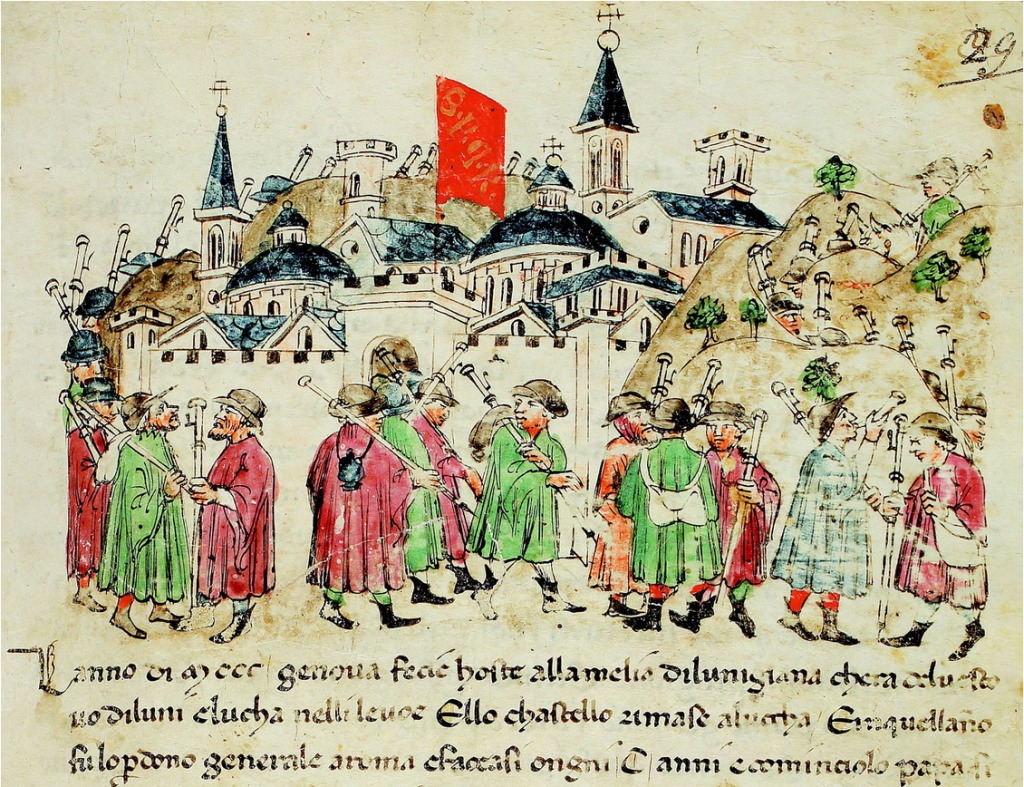 29
S.P.Q.R
Lanno di MCCC genova fecie hoste allamelia dilunigiana chera delvesco
vo diluni elucha nelli levoe Ello chastello rimase alucha Einquellano
fu lo pdono generale aroma efaccasi ongni C anni ecominciolo papa